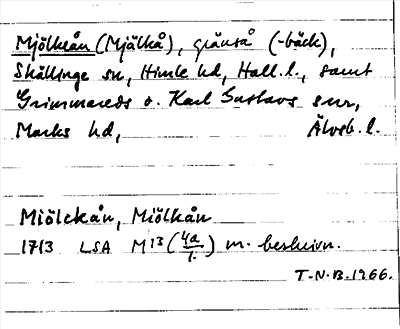 Mjölkeån (Mjälkå), gränså (-bäck),
Skällinge sn, Himle hd, Hall.l., samt
Grimmareds o. Karl Gustavs snr,
Marks hd, Älvsb.l.
Miölckån, Miölkån
1713 LSA M13 (4a/1.) m. beskrivn.
T.N.B. 1966.